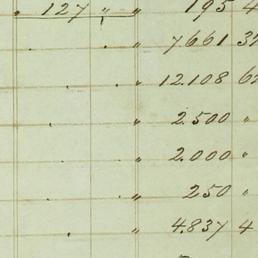 127 " " 195 4
" 7661 32
" 12.108 62
" 2.500 "
" 2.000 "
" 250 "
" 4.837 4